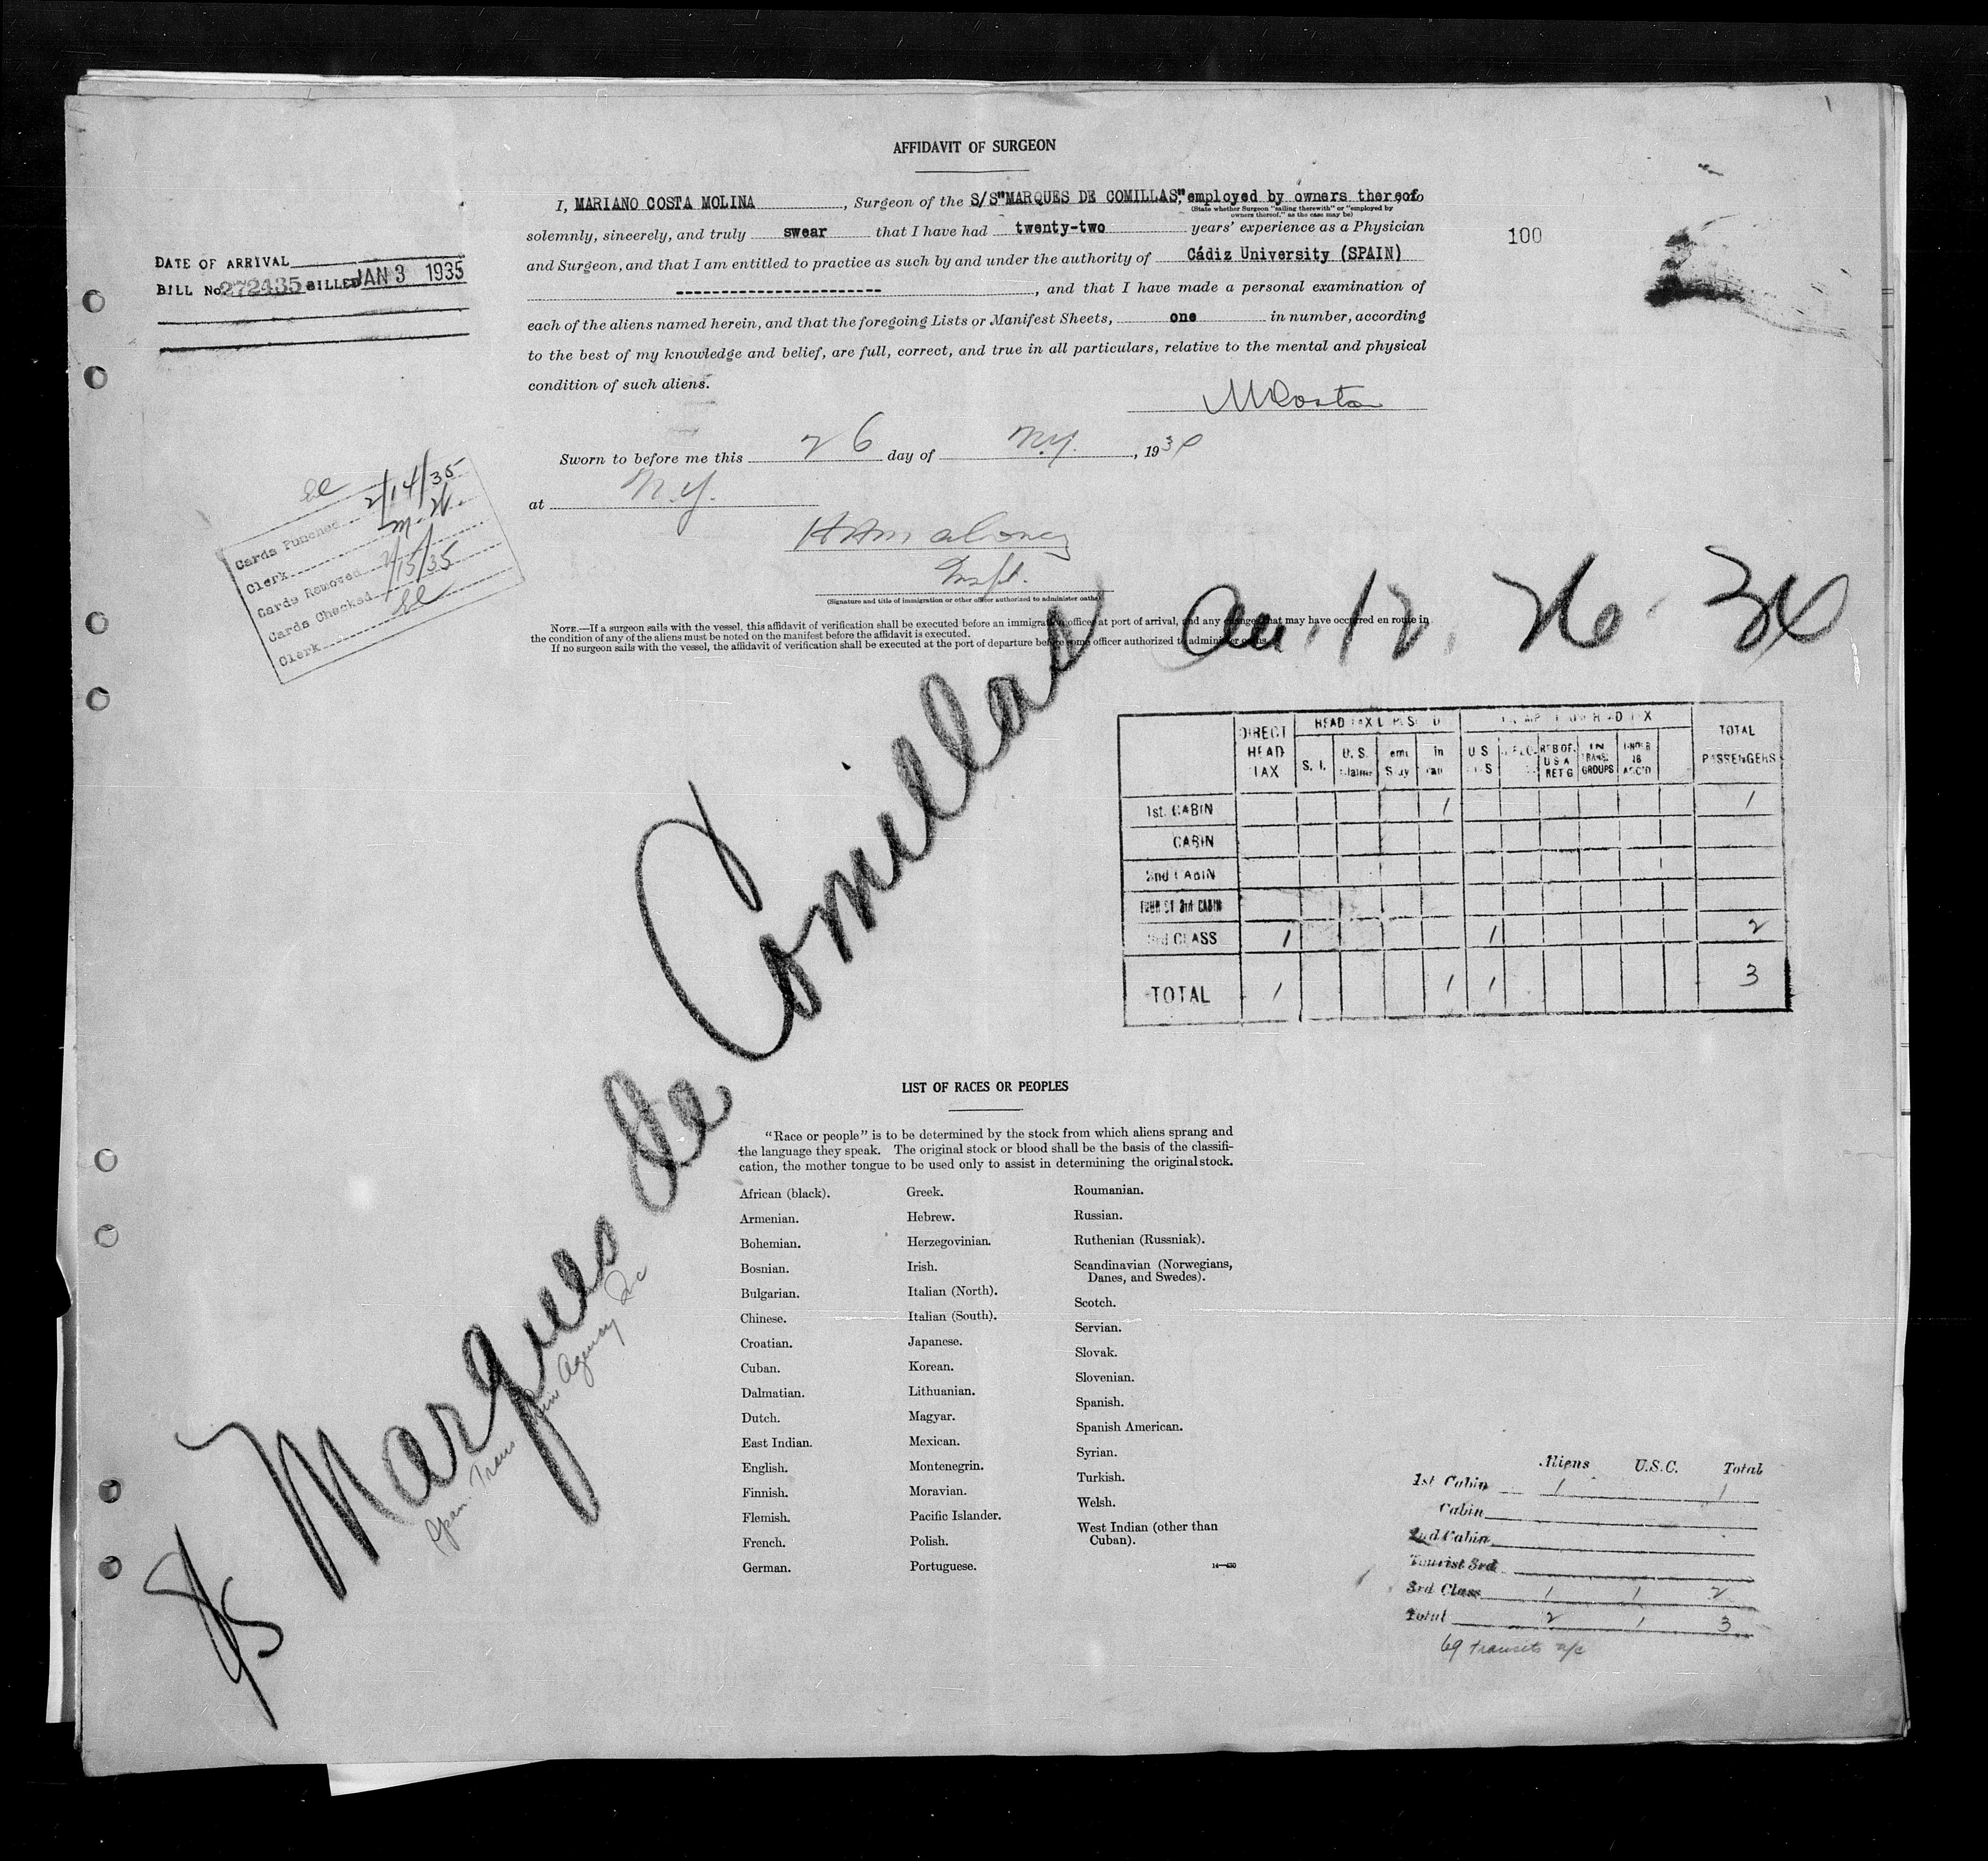 AFFIDAVIT OF SURGEON
I, MARIANO COSTA MOLINA, Surgeon of the S/S"MARQUES DE COMILLAS", employed by owners thereof do
(State whether Surgeon "sailing therewith" or "employed by
owners thereof," as the case may be)
solemnly, sincerely, and truly swear that I have had twenty-two years' experience as a Physician
and Surgeon, and that I am entitled to practice as such by and under the authority of Cádiz University (SPAIN)
-----------------------, and that I have made a personal examination of
each of the aliens named herein, and that the foregoing Lists or Manifest Sheets, one in number, according
to the best of my knowledge and belief, are full, correct, and true in all particulars, relative to the mental and physical
condition of such aliens.
MCosta
Sworn to before me this 26 day of N.Y., 193
at N.Y.
Inspt.
(Signature and title of immigration or other officer authorized to administer oaths)
NOTE.—If a surgeon sails with the vessel, this affidavit of verification shall be executed before an immigration officer at port of arrival, and any changes that may have occurred en route in
the condition of any of the aliens must be noted on the manifest before the affidavit is executed.
If no surgeon sails with the vessel, the affidavit of verification shall be executed at the port of departure before some officer authorized to administer oaths.
100
DATE OF ARRIVAL
BILL No 272435 BILLED JAN 3 1935
Cards Punched 2/14/35
Clerk M.H.
Cards Removed
Cards Checked 2/15/35
Clerk
12. 26 34
S/S Marques De Comillas
Span. Trans Agency Inc
DIRECT HEAD TAX
HEAD TAX
S. I.
U. S.
in
U S
REB OF. U S A RET G
IN TRANS. GROUPS
UNDER 16 ACC'D
TOTAL PASSENGERS
1st. CABIN 1 1
CABIN
2nd CABIN
TOURIST 3rd CABIN
3rd CLASS 1 1 2
TOTAL 1 1 1 3
LIST OF RACES OR PEOPLES
"Race or people" is to be determined by the stock from which aliens sprang and
the language they speak. The original stock or blood shall be the basis of the classifi-
cation, the mother tongue to be used only to assist in determining the original stock.
African (black).
Armenian.
Bohemian.
Bosnian.
Bulgarian.
Chinese.
Croatian.
Cuban.
Dalmatian.
Dutch.
East Indian.
English.
Finnish.
Flemish.
French.
German.
Greek.
Hebrew.
Herzegovinian.
Irish.
Italian (North).
Italian (South).
Japanese.
Korean.
Lithuanian.
Magyar.
Mexican.
Montenegrin.
Moravian.
Pacific Islander.
Polish.
Portuguese.
Roumanian.
Russian.
Ruthenian (Russniak).
Scandinavian (Norwegians,
Danes, and Swedes).
Scotch.
Servian.
Slovak.
Slovenian.
Spanish.
Spanish American.
Syrian.
Turkish.
Welsh.
West Indian (other than
Cuban).
14—430
Aliens U.S.C. Total
1st Cabin 1 1
Cabin
2nd Cabin
Tourist 3rd
3rd Class 1 1 2
Total 2 1 3
69 transits